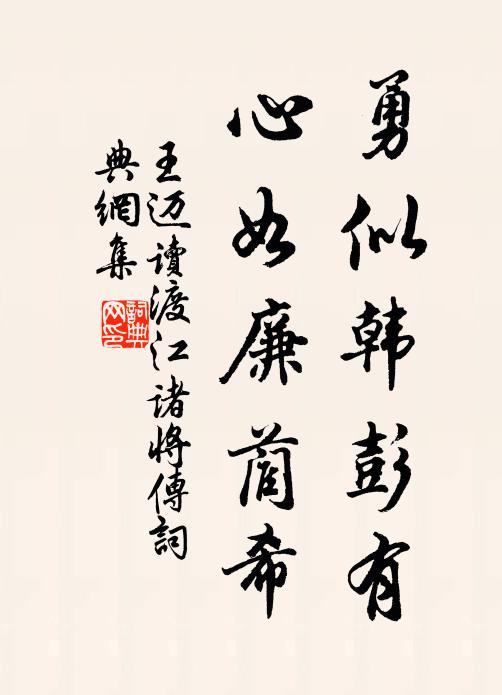 勇似韩彭有
心如廉蔺希
王迈读渡江诸将傳詞
典網集
詞典网印